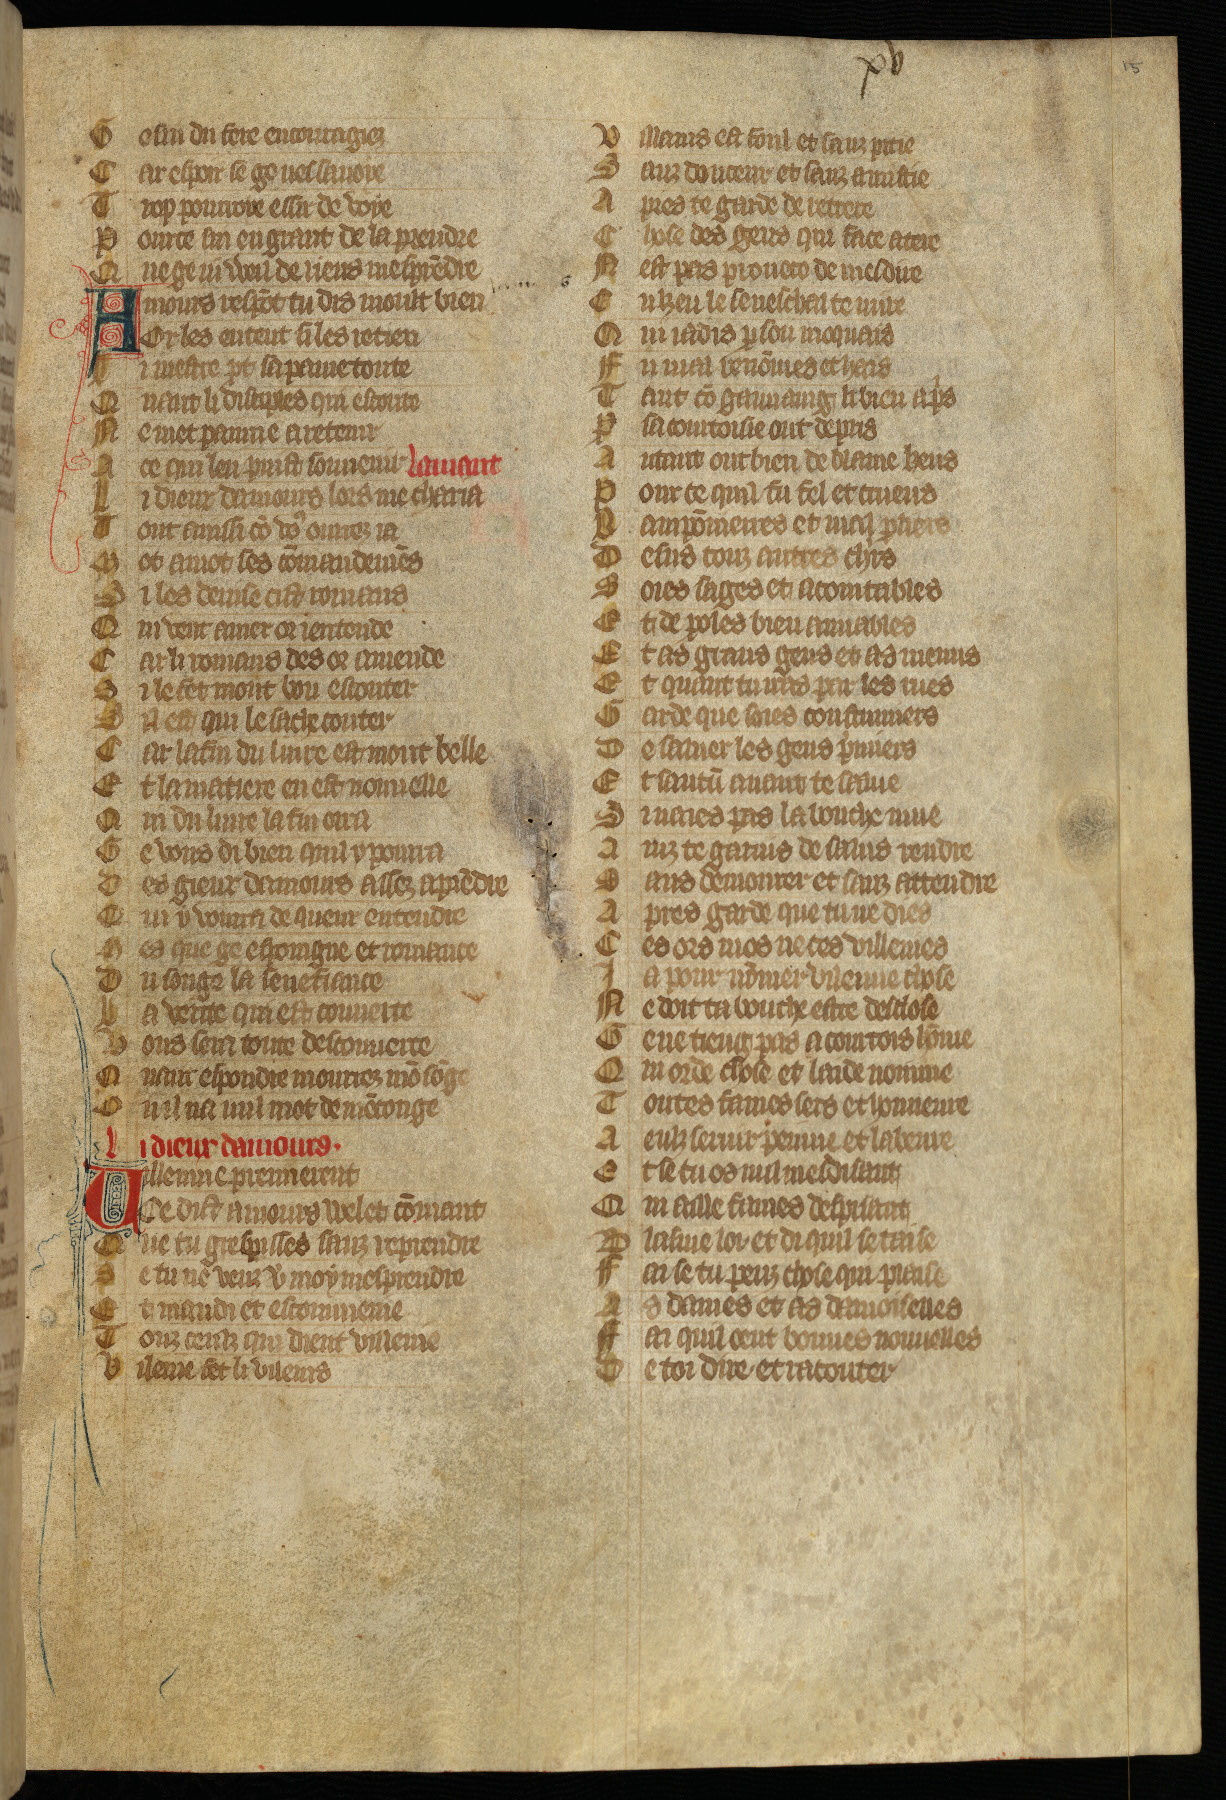 xv
15
G esui du fere encouragiez
C ar espoir se ge nes savoie
T rop pourroie issir de voye
P our ce sui en grant de la prendre
Q ue ge ni voil de riens mesprēdre
A mours respōt tu dis moult bien
Or les entent si les retien
L i mestre pt sa paine toute
Q uant li disciples qui escoute
N e met painne a retenir
A ce quil en puist souvenir lamant
L i dieux damours lors me charia
T out aussi cō vo9 orrez ia
M ot a mot ses cōmandemēs
B i les devise cist romans
Q ui veut amer or i entende
C ar li romans des or amende
S i le fet mont bon escouter
S il est qui le sache conter
C ar la fin du livre est mout belle
E t la matiere en est nouvelle
Q ui du livre la fin orra
G e vous di bien quil y pourra
D es gieux damours assez aprēdre
Q ui y vourra de queur entendre
D es que ge espoingne et romance
D u songe la senefiance
L a verite qui est couverte
V ous sera toute descouverte
Q uant espondre mourrez mō sōge
O u il na nul mot de mēconge
L i dieux damours.
Uilleinnie premierement
Ce dist amours vueil et cōmant
Q ue tu gresпisses sanz reprendre
S e tu ne veuz v̉ moy mesprendre
E t maudi et escommenie
T ouz ceulz qui dient villenie
V ilenie fet li vileins
V illains est foul et sanz pitie
S anz douceur et sanz amistie
A pres te garde de retrere
C hose des gens qui face a tere
N est pas proueco de mesdire
E n keu le seneschal te mire
Q ui iadis p̱ sou moquais
F u mal renōmes et hais
T ant cō gauvaing li bien ap̉s
P sa courtoisie out de pris
A utant out bien de blame keus
P our ce quil fu fel et crueus
R ampōnierres et maḻ ꝑliers
D esus touz autres chꝛs
S oies sages et acointables
E t de ꝑoles bien amiables
E t as grans gens et as menus
E t quant tu iras par les rues
G arde que soies coustumiers
D e saluer les gens p̉miers
E t sautū avant te salue
S i naies pas la bouche mue
A inz te garnis de salus rendre
S ans demourer et sanz attendre
A pres garde que tu ne dies
C es ors mos ne ces villenies
J a pour nōmer vilenie chose
N e doit ta bouche estre desclose
G e ne tieng pas a courtois hōme
Q ui orde chose et laide nomme
T outes fames sers et honneure
A eulz servir penine et labeure
E t se tu os nul mesdisant
Q ui aille fames despisant
B lasme loi et di quil se taise
F ai se tu peuz chose qui plaise
A s dames et as damoiselles
F ai quil oent bonnes nouvelles
D e toi dire et raconter